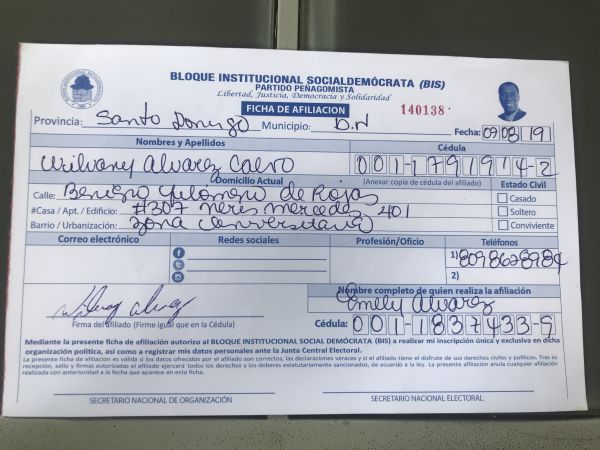 BLOQUE INSTITUCIONAL SOCIALDEMÓCRATA (BIS)
PARTIDO PEÑAGOMISTA
Libertad, Justicia, Democracia y Solidaridad
FICHA DE AFILIACION
140138
Provincia: Santo Domingo Municipio: D.N Fecha: 09/08/19
Nombres y Apellidos Cédula
Alvarez Calvo 001-1791914-2
Domicilio Actual (Anexar copia de cédula del afiliado) Estado Civil
Calle: Benigno Filomeno de Rojas Casado
#Casa / Apt. / Edificio: #307 Neris Mercedes 401 Soltero
Barrio / Urbanización: Zona Universitaria Conviviente
Correo electrónico Redes sociales Profesión/Oficio Teléfonos
1) 8098628984
2)
Nombre completo de quien realiza la afiliación
Alvarez Emely Alvarez
Firma del afiliado (Firme igual que en la Cédula) Cédula: 001-1837433-9
Mediante la presente ficha de afiliación autorizo al BLOQUE INSTITUCIONAL SOCIAL DEMÓCRATA (BIS) a realizar mi inscripción única y exclusiva en dicha
organización política, así como a registrar mis datos personales ante la Junta Central Electoral.
La presente ficha de afiliación es válida si los datos ofrecidos por el afiliado son correctos, las declaraciones veraces y si el afiliado tiene el disfrute de sus derechos civiles y políticos. Tras su
recepción, sello y firmas autorizadas el afiliado ejercerá todos los derechos y los deberes estatutariamente sancionados, de acuerdo a la ley. La presente afiliación anula cualquier afiliación
realizada con anterioridad a la fecha que aparece en esta ficha.
SECRETARIO NACIONAL DE ORGANIZACIÓN SECRETARIO NACIONAL ELECTORAL